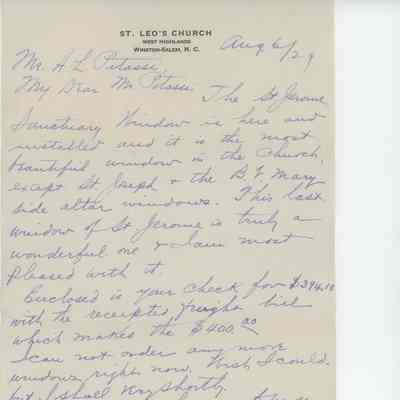 ST. LEO'S CHURCH
WEST HIGHLANDS
WINSTON-SALEM, N. C.
Aug 6/29
Mr. H L Pitassi,
My Dear Mr Pitassi. The St Jerome
Sanctuary Window is here and
installed and it is the most
beautiful window in the Church,
except St Joseph & the B. V. Mary
side altar windows. This last
window of St Jerome is truly a
wonderful one & I am most
pleased with it.
Enclosed is your check for $394.10
with the receipted freight bill
which makes the $400.00
I can not order any more
windows right now. Wish I could.
but I shall very shortly